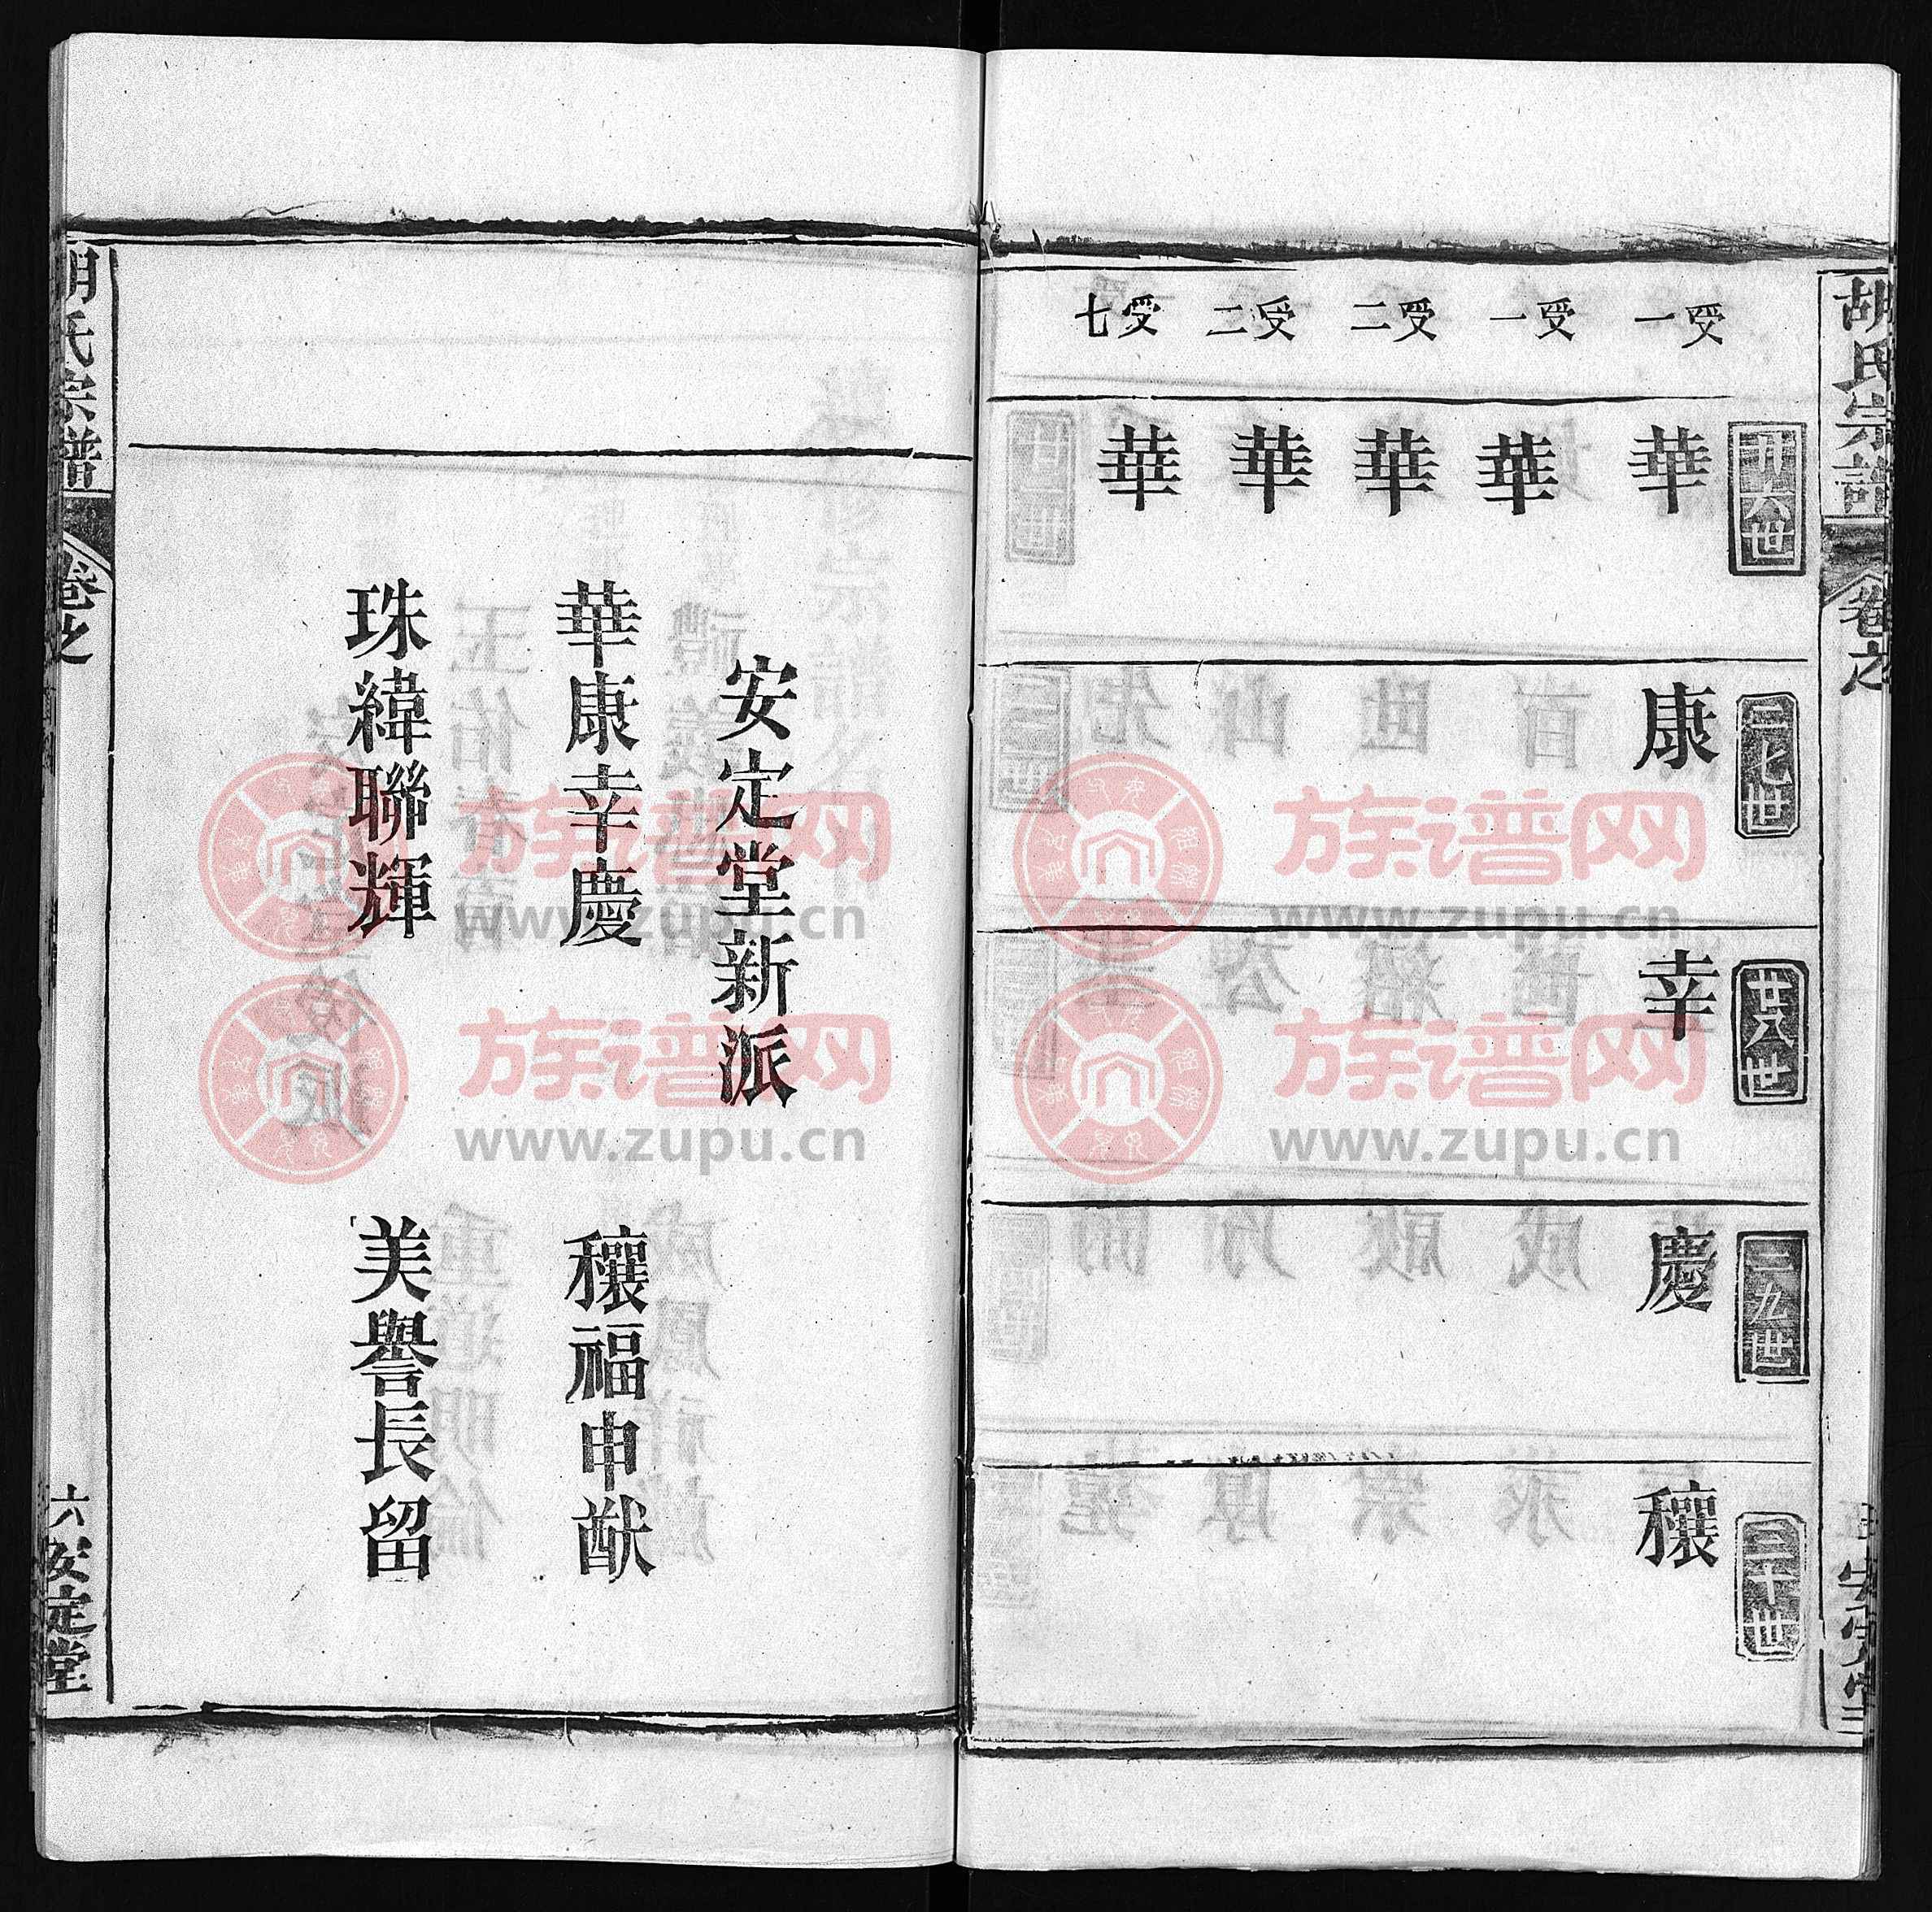 胡氏宗譜
卷之
安定堂
受一
受一
受二
受二
受七
廿六世
華
華
華
華
華
二七世
康
廿八世
幸
二九世
慶
三十世
穰
安定堂新派
華康幸慶 穰福申猷
珠緯聯輝 美譽長留
胡氏宗譜
卷之
六
安定堂
族谱网
www.zupu.cn
族谱网
www.zupu.cn
族谱网
www.zupu.cn
族谱网
www.zupu.cn